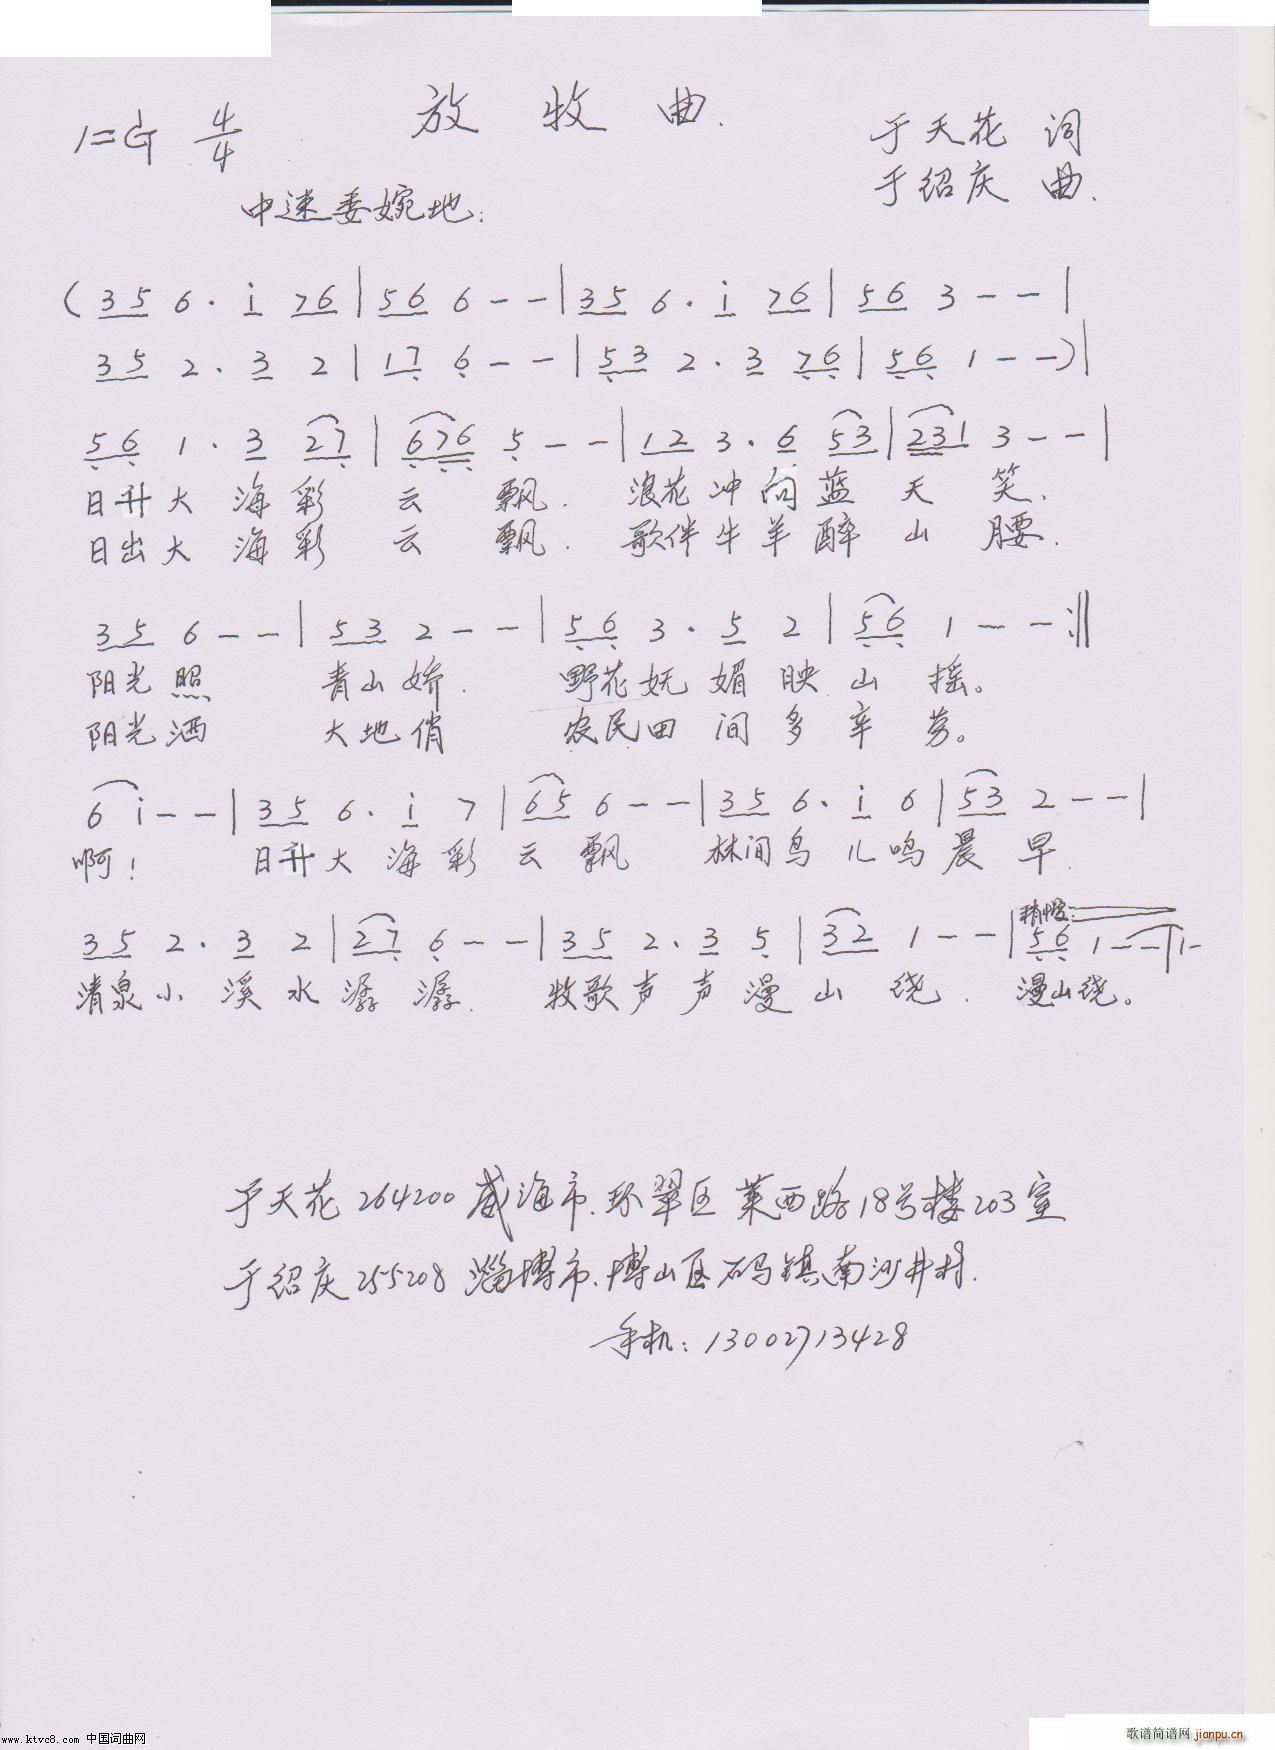 放牧曲.
1=G 4/4
于天花 词
于绍庆 曲.
中速委婉地:
( 3 5 6 · i 7 6 | 5 6 6 - - | 3 5 6 · i 7 6 | 5 6 3 - - |
3 5 2 · 3 2 | 1 7 6 - - | 5 3 2 · 3 7 6 | 5 6 1 - - ) |
5 6 1 · 3 2 7 | 6 7 6 5 - - | 1 2 3 · 6 5 3 | 2 3 1 3 - - |
日升大海彩云飘. 浪花冲向蓝天笑.
日出大海彩云飘. 歌伴牛羊醉山腰.
3 5 6 - - | 5 3 2 - - | 5 6 3 · 5 2 | 5 6 1 - - :||
阳光照 青山娇. 野花妩媚映山摇。
阳光洒 大地俏 农民田间多辛劳。
6 i - - | 3 5 6 · i 7 | 6 5 6 - - | 3 5 6 · i 6 | 5 3 2 - - |
啊! 日升大海彩云飘 林间鸟儿鸣晨早.
稍慢
3 5 2 · 3 2 | 2 7 6 - - | 3 5 2 . 3 5 | 3 2 1 - - | 5 6 1 - - | 1 -
清泉小溪水潺潺. 牧歌声声漫山绕. 漫山绕。
于天花 264200 威海市.环翠区莱西路18号楼203室
于绍庆 255208 淄博市.博山区石码镇南沙井村.
手机: 13002713428
www.ktvc8.com 中国词曲网
歌谱简谱网 jianpu.cn